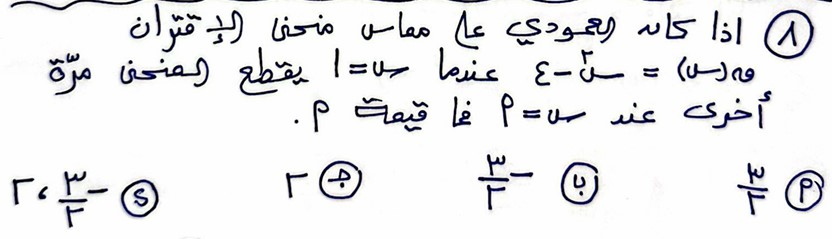 ٨ اذا كان العمودي على مماس منحنى الإقتران
ق(س) = س² - ٤ عندما س=١ يقطع المنحنى مرّة
أخرى عند س=م فما قيمة م.
م ٣/٢ ب -٣/٢ ج ٢ د -٣/٢ ، ٢